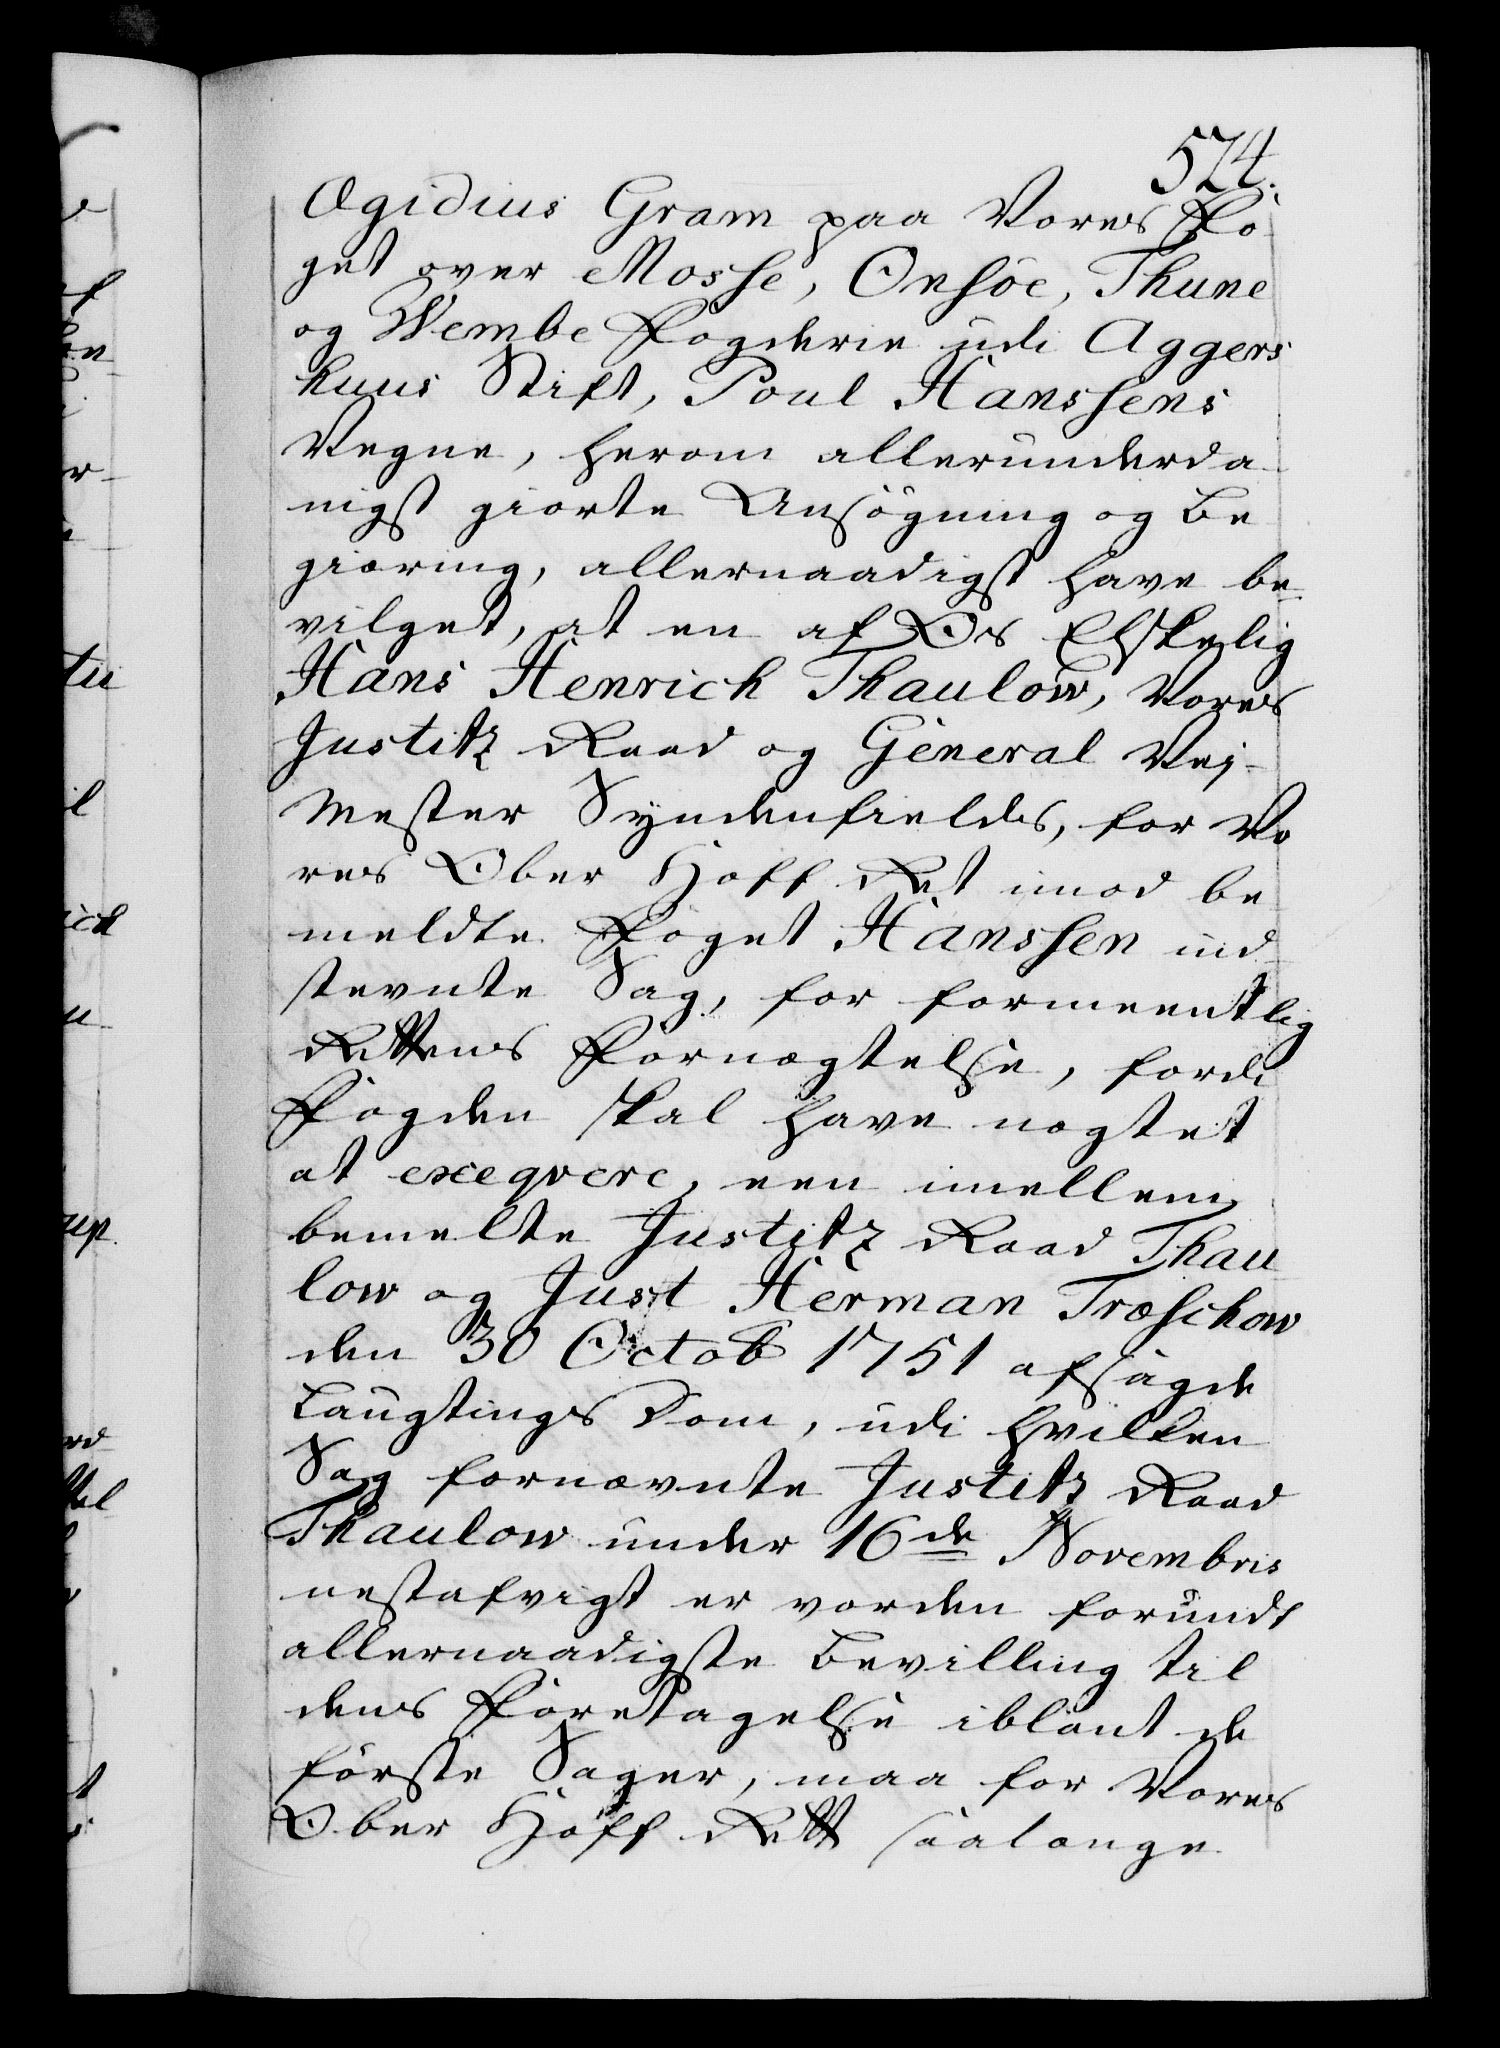 574.
Ægidius Gram paa Vores Fo
get over Mosse, Onsöe, Thune
og Wembe Fogderie udi Aggers
huus Stift, Poul Hanssens
Vegne, herom allerunderda
nigst giorte Ansögning og Be
giæring, allernaadigst have be-
vilget, at en af Os Elskelig
Hans Henrich Thaulow, Vores
Justitz Raad og General Vej-
Mester Syndenfields, for Vo
res Ober Hoff Ret imod be
meldte Foget Hanssen ind
stevnte Sag, for formeentlig
Rettens Fornægtelse, fordi
Fogden skal have nægtet
at exeqvere, een imellem
bemelte Justitz Raad Thau
low og Just Herman Træschow
den 30 Octob 1751 afsagde
Laugtings Dom, udi hvilken
Sag fornævnte Justitz Raad
Thaulow under 16de Novembris
nestafvigt er vorden forundt
allernaadigste Bevilling til
dens Foretagelse iblant de
förste Sager, maa for Vores
Ober Hoff Rett saalænge